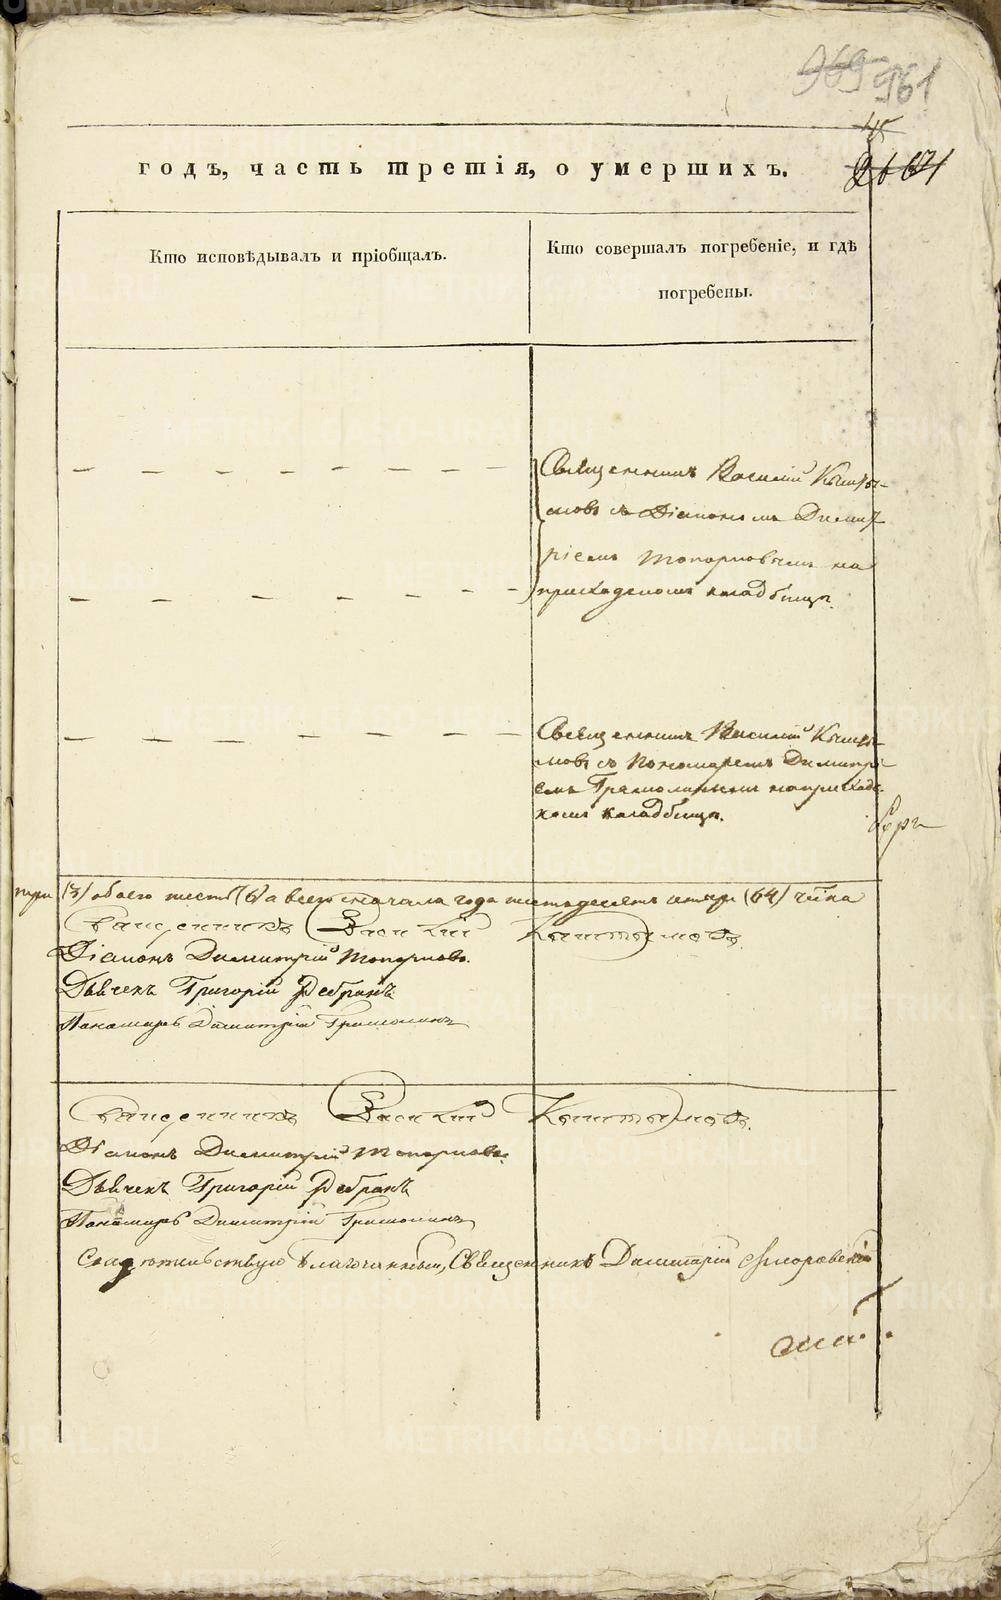 969 961
годъ, часть третія, о умершихъ.
Кто исповѣдывалъ и пріобщалъ.
Кто совершалъ погребеніе, и гдѣ
погребены.
Священникъ Василій Кышты-
мовъ съ Діакономъ Димит
ріемъ Топорковымъ на
приходскомъ кладбищѣ.
Священникъ Василій Кышты-
мовъ съ Пономаремъ Димитрі-
емъ на приходс-
комъ кладбищѣ.
три (3) обоего шесть (6) а всего сначала года шестьдесятъ четыре (64) чел
Священникъ Василій Кыштымовъ
Діаконъ Димитрій Топорковъ.
Дьячекъ Григорій
Пономарь Димитрій
Священникъ Василій Кыштымовъ.
Діаконъ Димитрій Топорковъ.
Дьячекъ Григорій
Пономарь Димитрій
Свидѣтельствую Благочинный, Священникъ Димитрій
METRIKI.GASO-URAL.RU